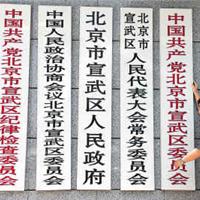 中国共产党北京市宣武区纪律检查委员会
中国人民政治协商会议北京市宣武区委员会
北京市宣武区人民政府
北京市
宣武区
人民代表大会常务委员会
中国共产党北京市宣武区委员会